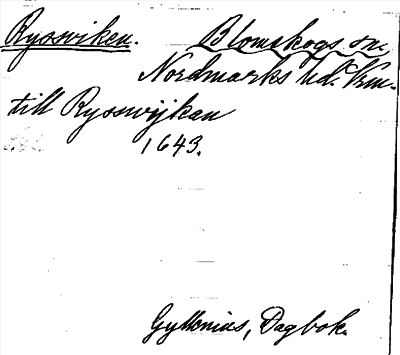 Rysswiken. Blomskogs sn,
Nordmarks hd. Vrm.
till Rysswijkan
1643.
Gyllenius, Dagbok.